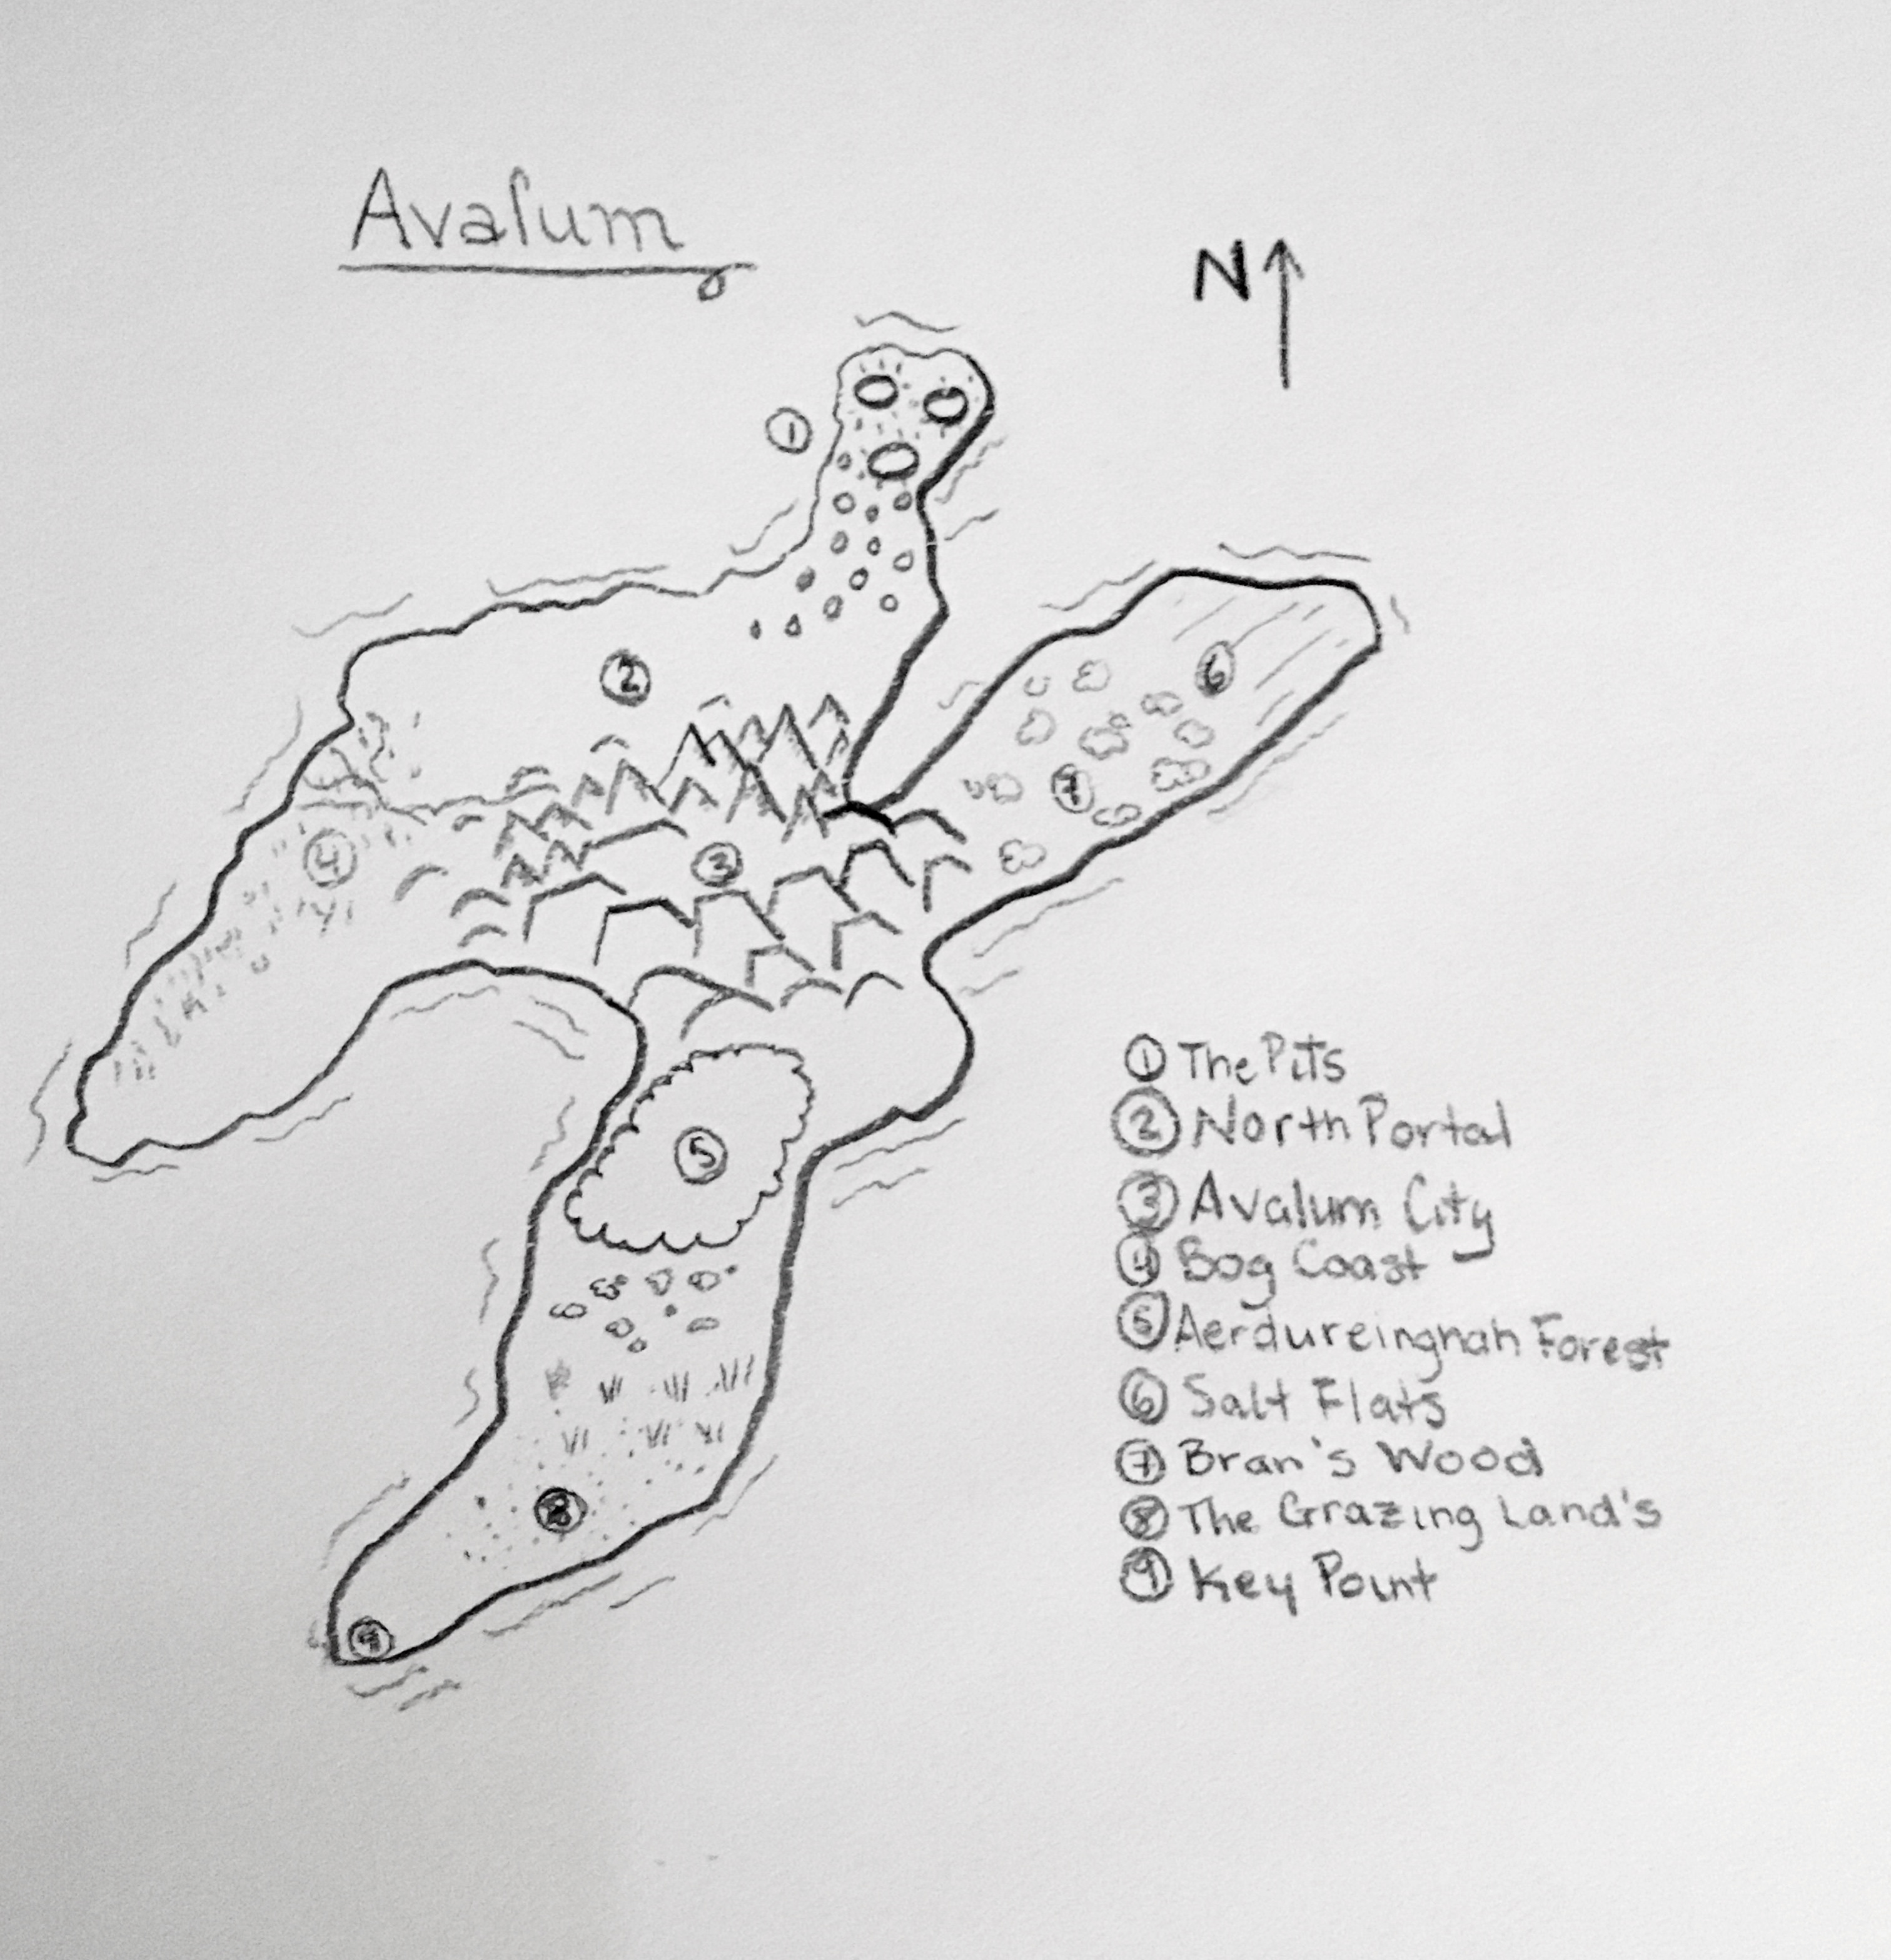 Avalum
N
1
2
6
7
4
3
5
8
9
1 The Pits
2 North Portal
3 Avalum City
4 Bog Coast
5 Aerdureingnah Forest
6 Salt Flats
7 Bran's Wood
8 The Grazing Land's
9 Key Point